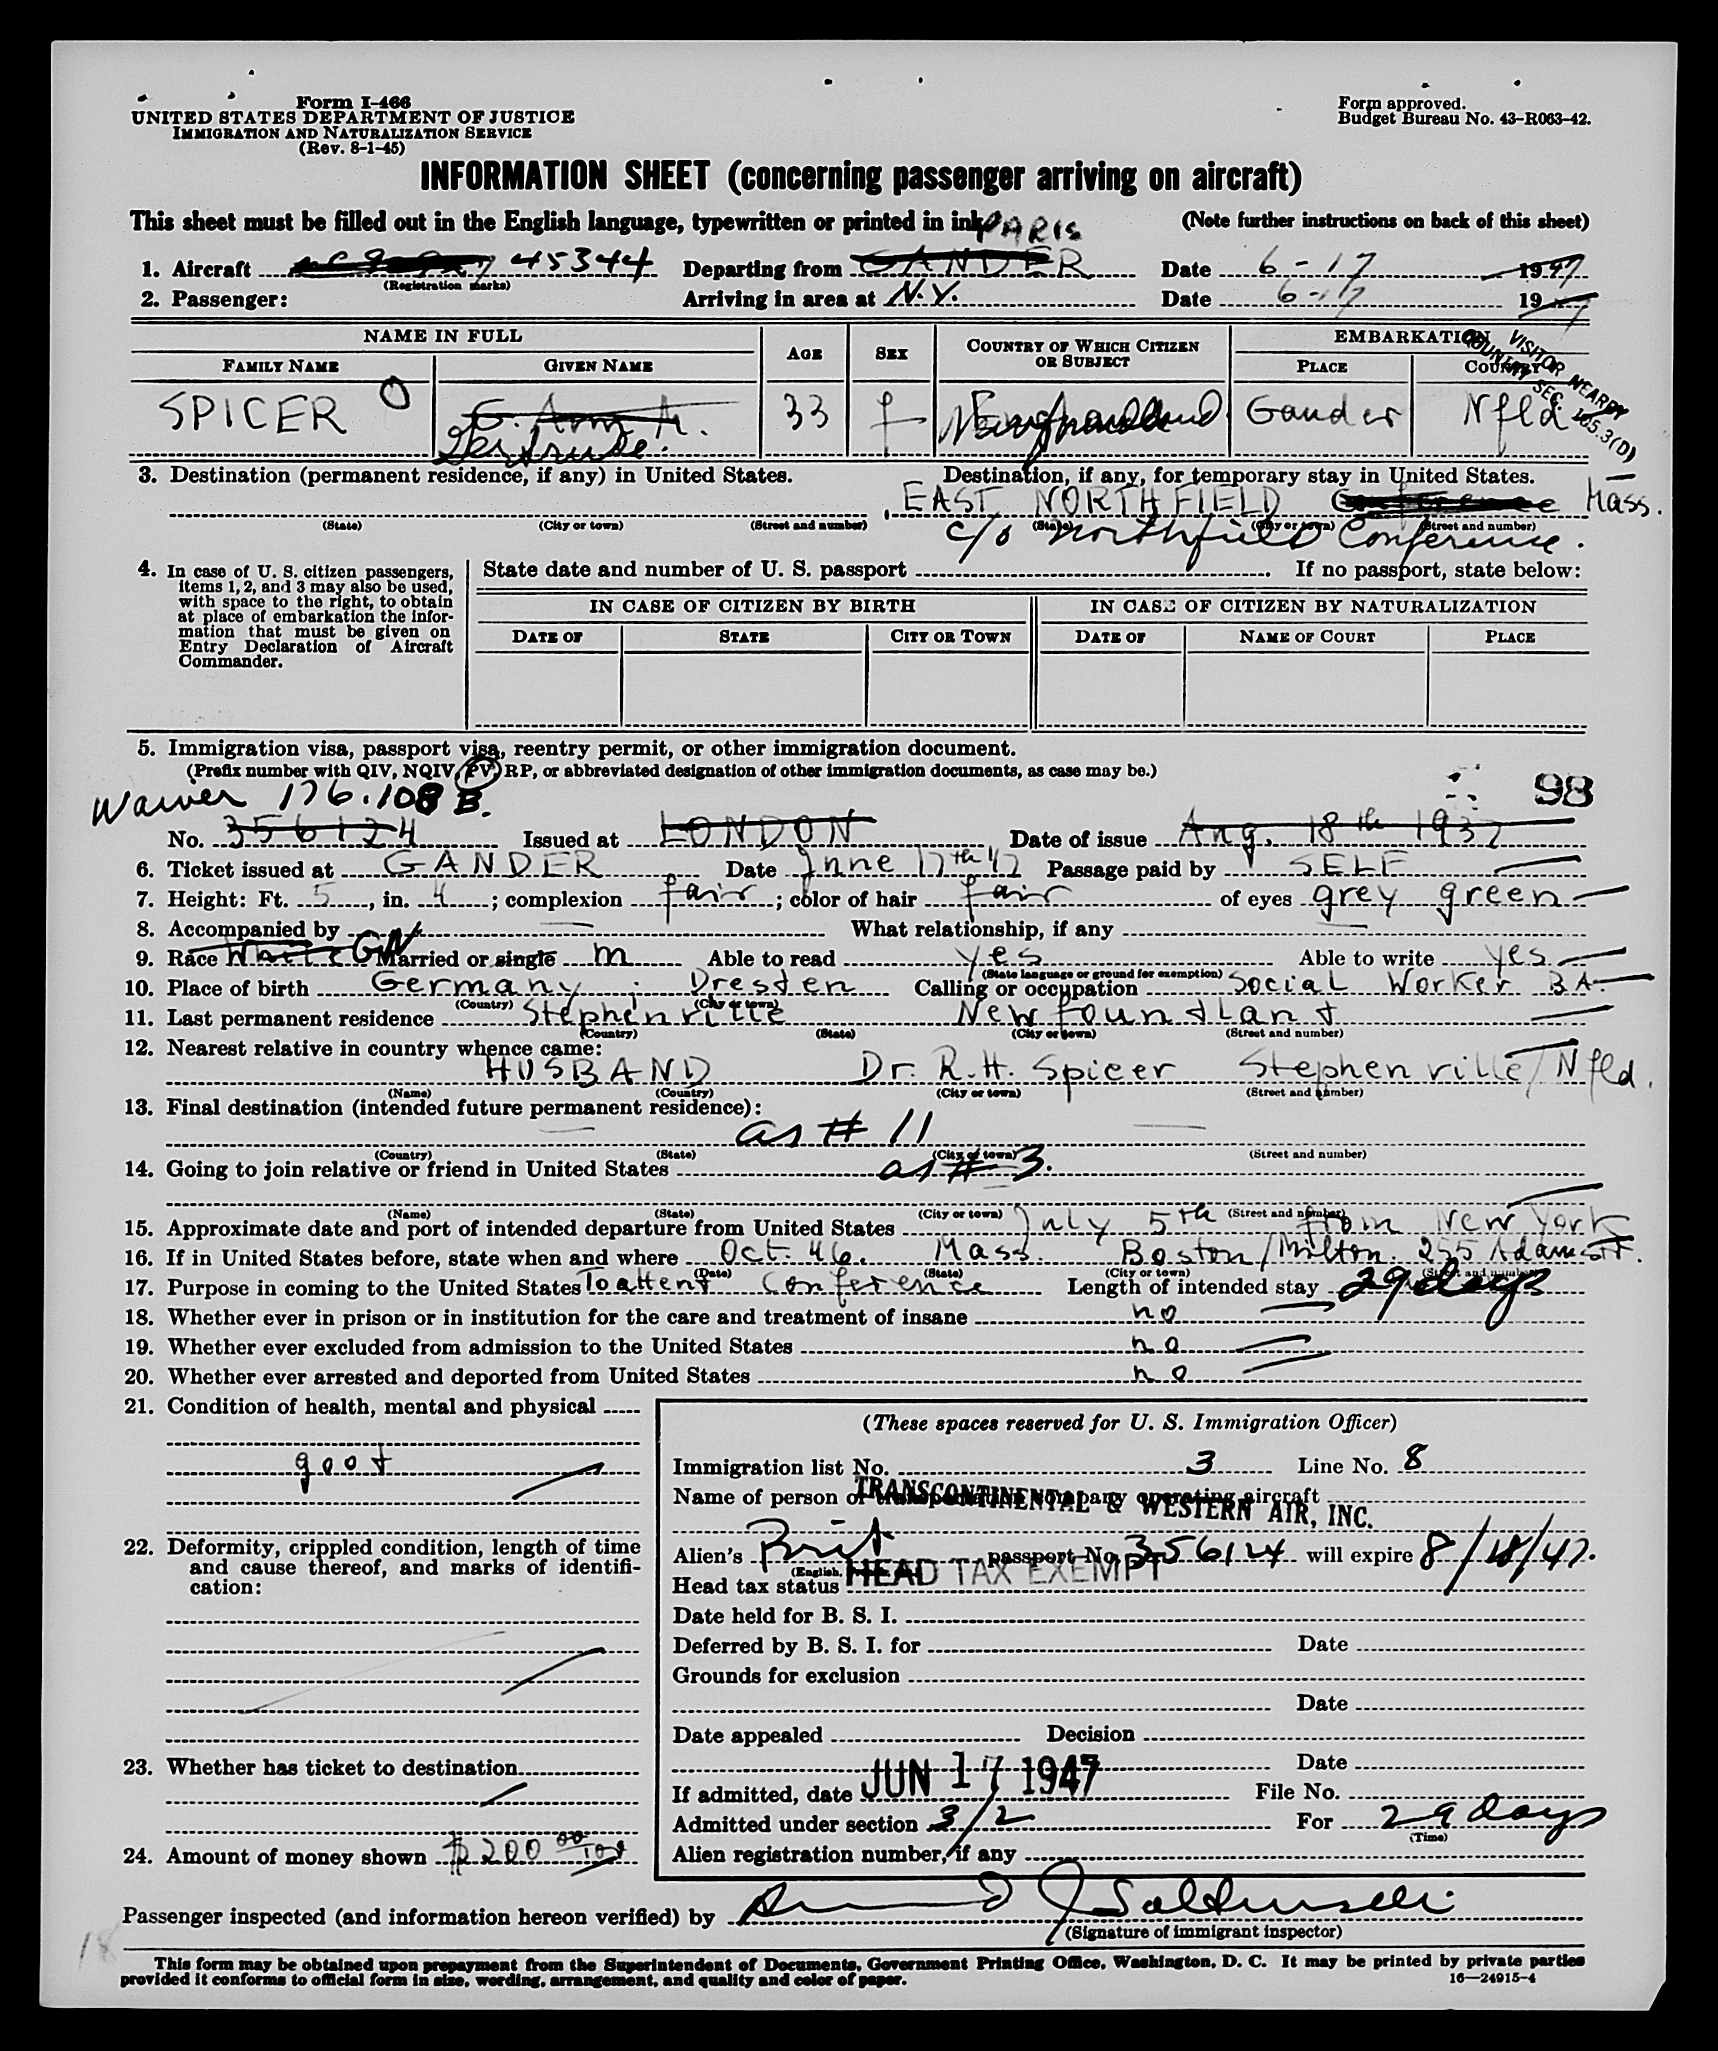 Form I-466
UNITED STATES DEPARTMENT OF JUSTICE
IMMIGRATION AND NATURALIZATION SERVICE
(Rev. 8-1-45)
Form approved.
Budget Bureau No. 43-R063-42.
INFORMATION SHEET (concerning passenger arriving on aircraft)
This sheet must be filled out in the English language, typewritten or printed in ink. (Note further instructions on back of this sheet)
PARIS
1. Aircraft 45344 Departing from GANDER Date 6-17 1947
(Registration marks)
2. Passenger: Arriving in area at N.Y. Date 6-17 1947
NAME IN FULL AGE SEX COUNTRY OF WHICH CITIZEN OR SUBJECT EMBARKATION
FAMILY NAME GIVEN NAME PLACE COUNTRY
VISITOR NEARBY
COUNTRY SEC. 165.3(D)
SPICER O G. Ann A. 33 f Gander Nfld
Gertrude.
3. Destination (permanent residence, if any) in United States. Destination, if any, for temporary stay in United States.
EAST NORTHFIELD Conference Mass.
(State) (City or town) (Street and number) (State) (City or town) (Street and number)
c/o Northfield Conference.
4. In case of U. S. citizen passengers, items 1, 2, and 3 may also be used, with space to the right, to obtain at place of embarkation the information that must be given on Entry Declaration of Aircraft Commander.
State date and number of U. S. passport If no passport, state below:
IN CASE OF CITIZEN BY BIRTH IN CASE OF CITIZEN BY NATURALIZATION
DATE OF STATE CITY OR TOWN DATE OF NAME OF COURT PLACE
5. Immigration visa, passport visa, reentry permit, or other immigration document.
(Prefix number with QIV, NQIV, PV, RP, or abbreviated designation of other immigration documents, as case may be.)
98
Waiver 176.108 B.
No. 356124 Issued at LONDON Date of issue Aug. 18th 1937
6. Ticket issued at GANDER Date June 17th 47 Passage paid by SELF
7. Height: Ft. 5, in. 4; complexion fair; color of hair fair of eyes grey green
8. Accompanied by What relationship, if any
9. Race White Married or single m Able to read yes Able to write yes
(State language or ground for exemption)
10. Place of birth Germany; Dresden Calling or occupation Social Worker BA.
(Country) (City or town)
11. Last permanent residence Stephenville Newfoundland
(Country) (State) (City or town) (Street and number)
12. Nearest relative in country whence came:
HUSBAND Dr. R.H. Spicer Stephenville/Nfld.
(Name) (Country) (City or town) (Street and number)
13. Final destination (intended future permanent residence):
as # 11
(Country) (State) (City or town) (Street and number)
14. Going to join relative or friend in United States as # 3.
(Name) (State) (City or town) (Street and number)
15. Approximate date and port of intended departure from United States July 5th from New York
16. If in United States before, state when and where Oct. 46. Mass. Boston/Milton. 255 Adams Str.
(Date) (State) (City or town) (Street and number)
17. Purpose in coming to the United States To attend conference Length of intended stay 29 days
18. Whether ever in prison or in institution for the care and treatment of insane no
19. Whether ever excluded from admission to the United States no
20. Whether ever arrested and deported from United States no
21. Condition of health, mental and physical
good
22. Deformity, crippled condition, length of time and cause thereof, and marks of identification:
23. Whether has ticket to destination
24. Amount of money shown $200 00/100
(These spaces reserved for U. S. Immigration Officer)
Immigration list No. 3 Line No. 8
Name of person or transportation company operating aircraft
TRANSCONTINENTAL & WESTERN AIR, INC.
Alien's Brit passport No. 356124 will expire 8/18/47.
Head tax status HEAD TAX EXEMPT
Date held for B. S. I.
Deferred by B. S. I. for Date
Grounds for exclusion
Date
Date appealed Decision
Date
If admitted, date JUN 17 1947 File No.
Admitted under section 3/2 For 29 days
(Time)
Alien registration number, if any
Passenger inspected (and information hereon verified) by
(Signature of immigrant inspector)
18
This form may be obtained upon prepayment from the Superintendent of Documents, Government Printing Office, Washington, D. C. It may be printed by private parties
provided it conforms to official form in size, wording, arrangement, and quality and color of paper. 16—24915-4